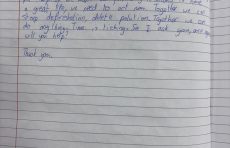 a great life, we need to act now. Together we can
stop deforestation, delete polution. Together we can
do anything. Time is ticking. So I ask you, ask
will you help?
Thank you.